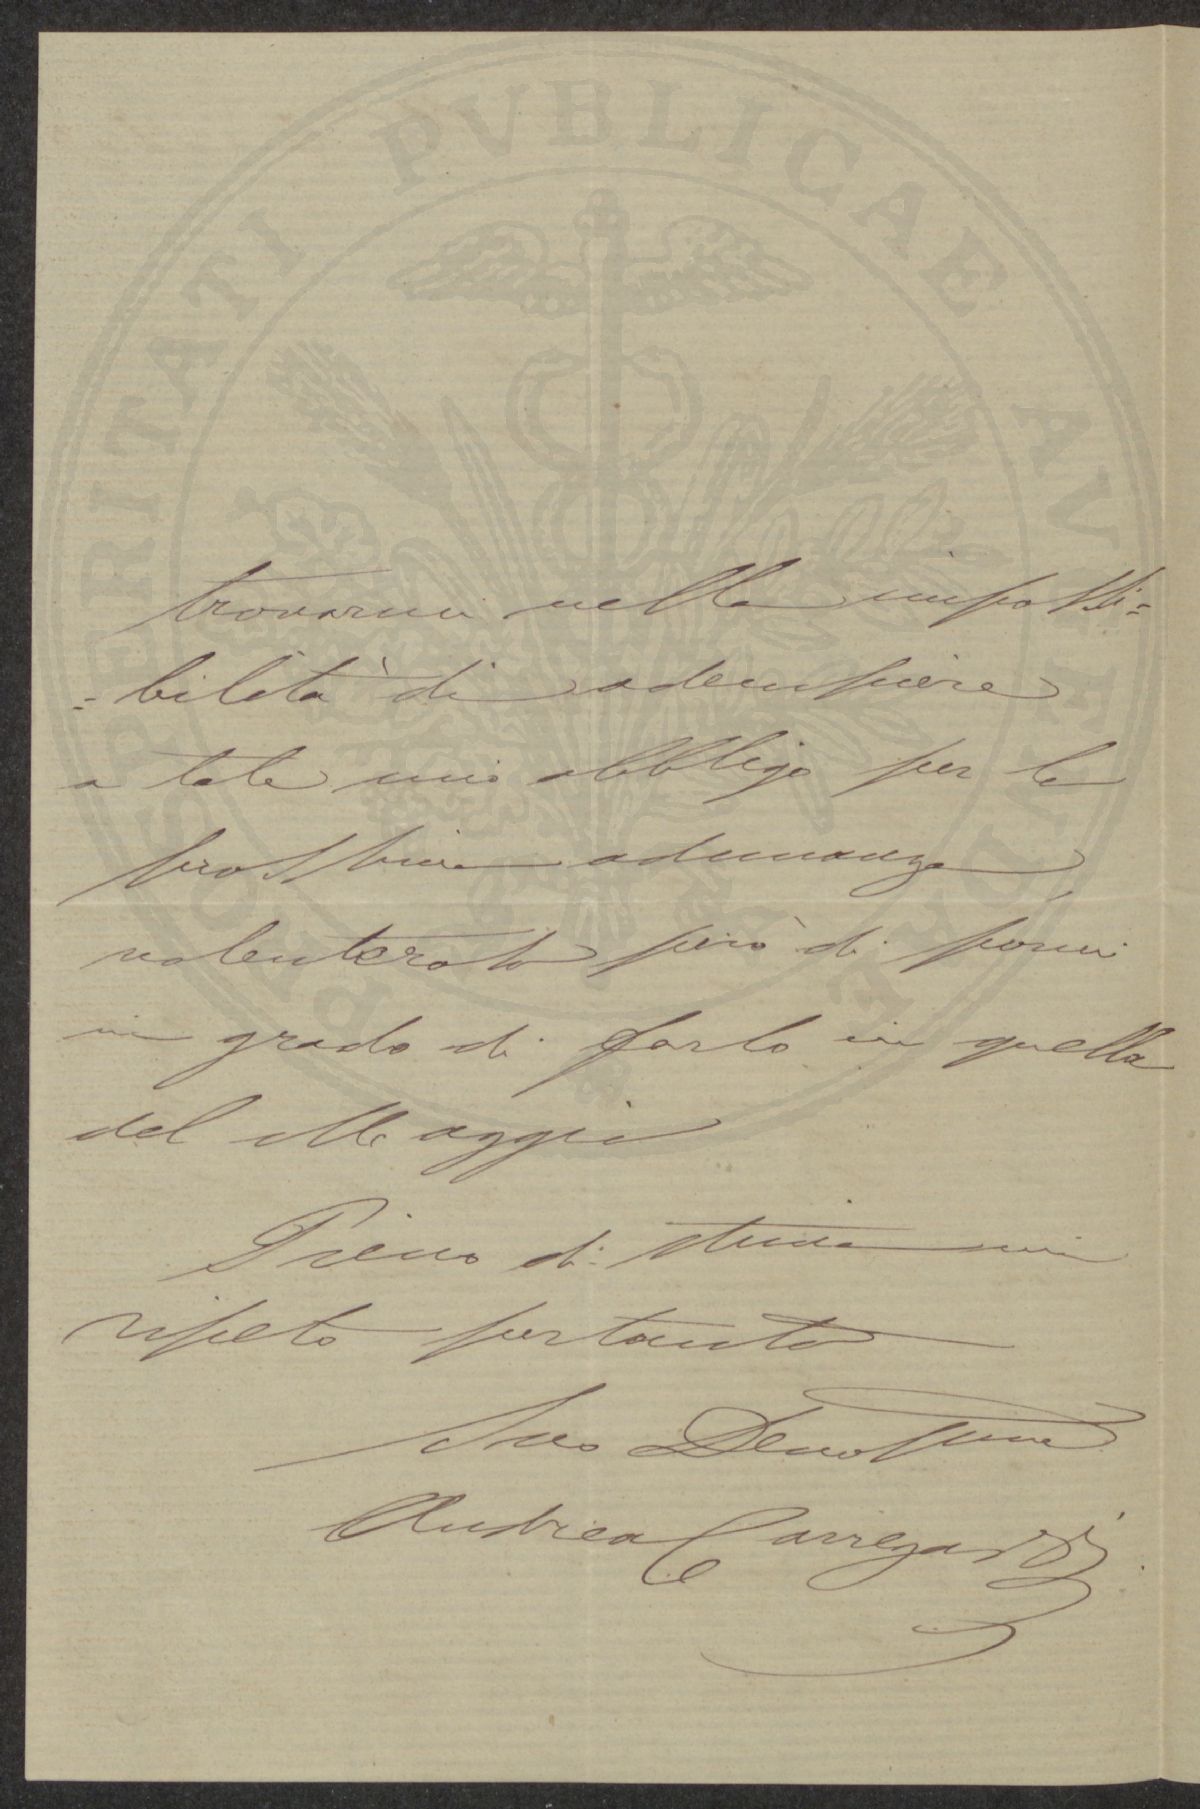 PROSPERITATI PVBLICAE AVGENDAE
trovarmi nella impossi=
=bilità di adempiere
a tale mio obbligo per la
prossima adunanza,
volenteroso però di pormi
in grado di farlo in quella
del Maggio
Pieno di stima mi
ripeto pertanto
Suo Devotissimo
Andrea Carrega